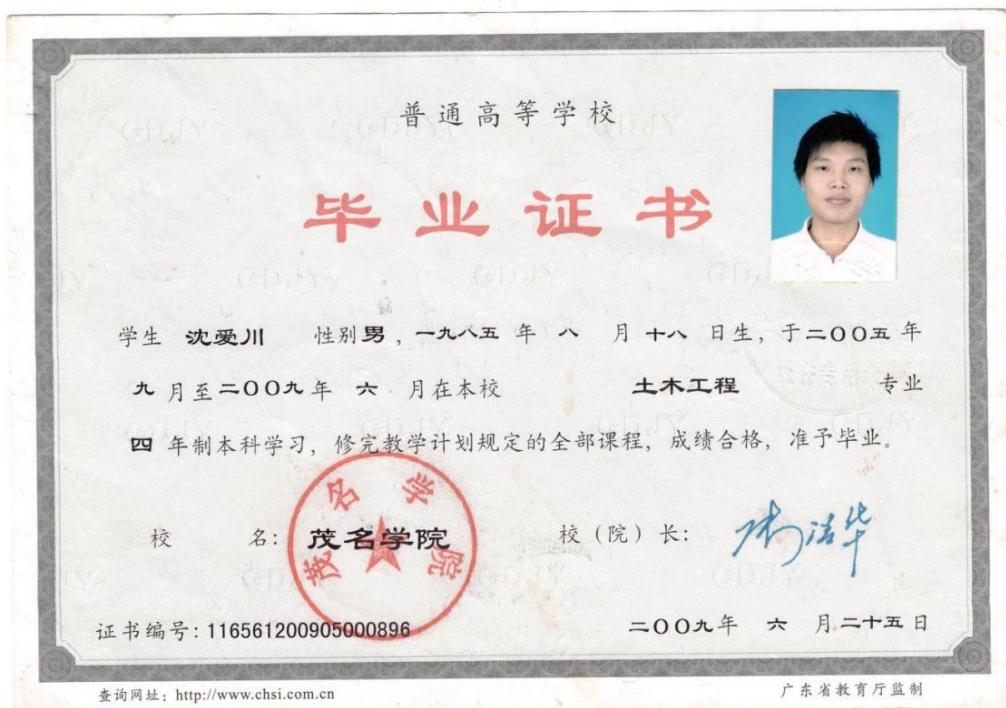 普通高等学校
毕业证书
学生 沈爱川 性别男，一九八五 年 八 月 十八 日生，于二〇〇五 年
九 月至二〇〇九年 六 月在本校 土木工程 专业
四 年制本科学习，修完教学计划规定的全部课程，成绩合格，准予毕业。
校 名：茂名学院 校（院）长：
茂名学院
证书编号：116561200905000896 二〇〇九年 六 月二十五日
查询网址：http://www.chsi.com.cn 广东省教育厅监制
GDJY